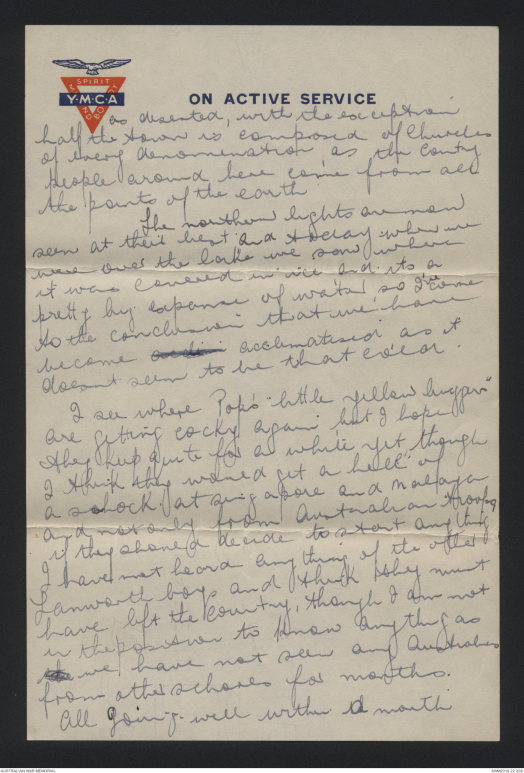 SPIRIT
Y·M·C·A
MIND
BODY
ON ACTIVE SERVICE
as deserted, with the exception
half the town is composed of Churches
of every denomination as the Contry
people around here come from all
the points of the earth
The northern lights are now
seen at their best and today when we
were over the lake we saw where
it was covered in ice and its a
pretty big expanse of water so I've come
to the conclusion that we have
become acclimatised as it
doesnt seem to be that cold.
I see where Pop's "little yellow buggers"
are getting cocky again but I hope
they keep quite for a while yet though
I think they would get a hell of
a shock at Singapore and Malaya
and not only from Australian troops
if they should decide to start anything
I have not heard anything of the other
Tamworth boys and think they must
have left the country, though I am not
in the position to know anything as
we have not seen any Australians
from other schools for months.
All going well within a month
AUSTRALIAN WAR MEMORIAL